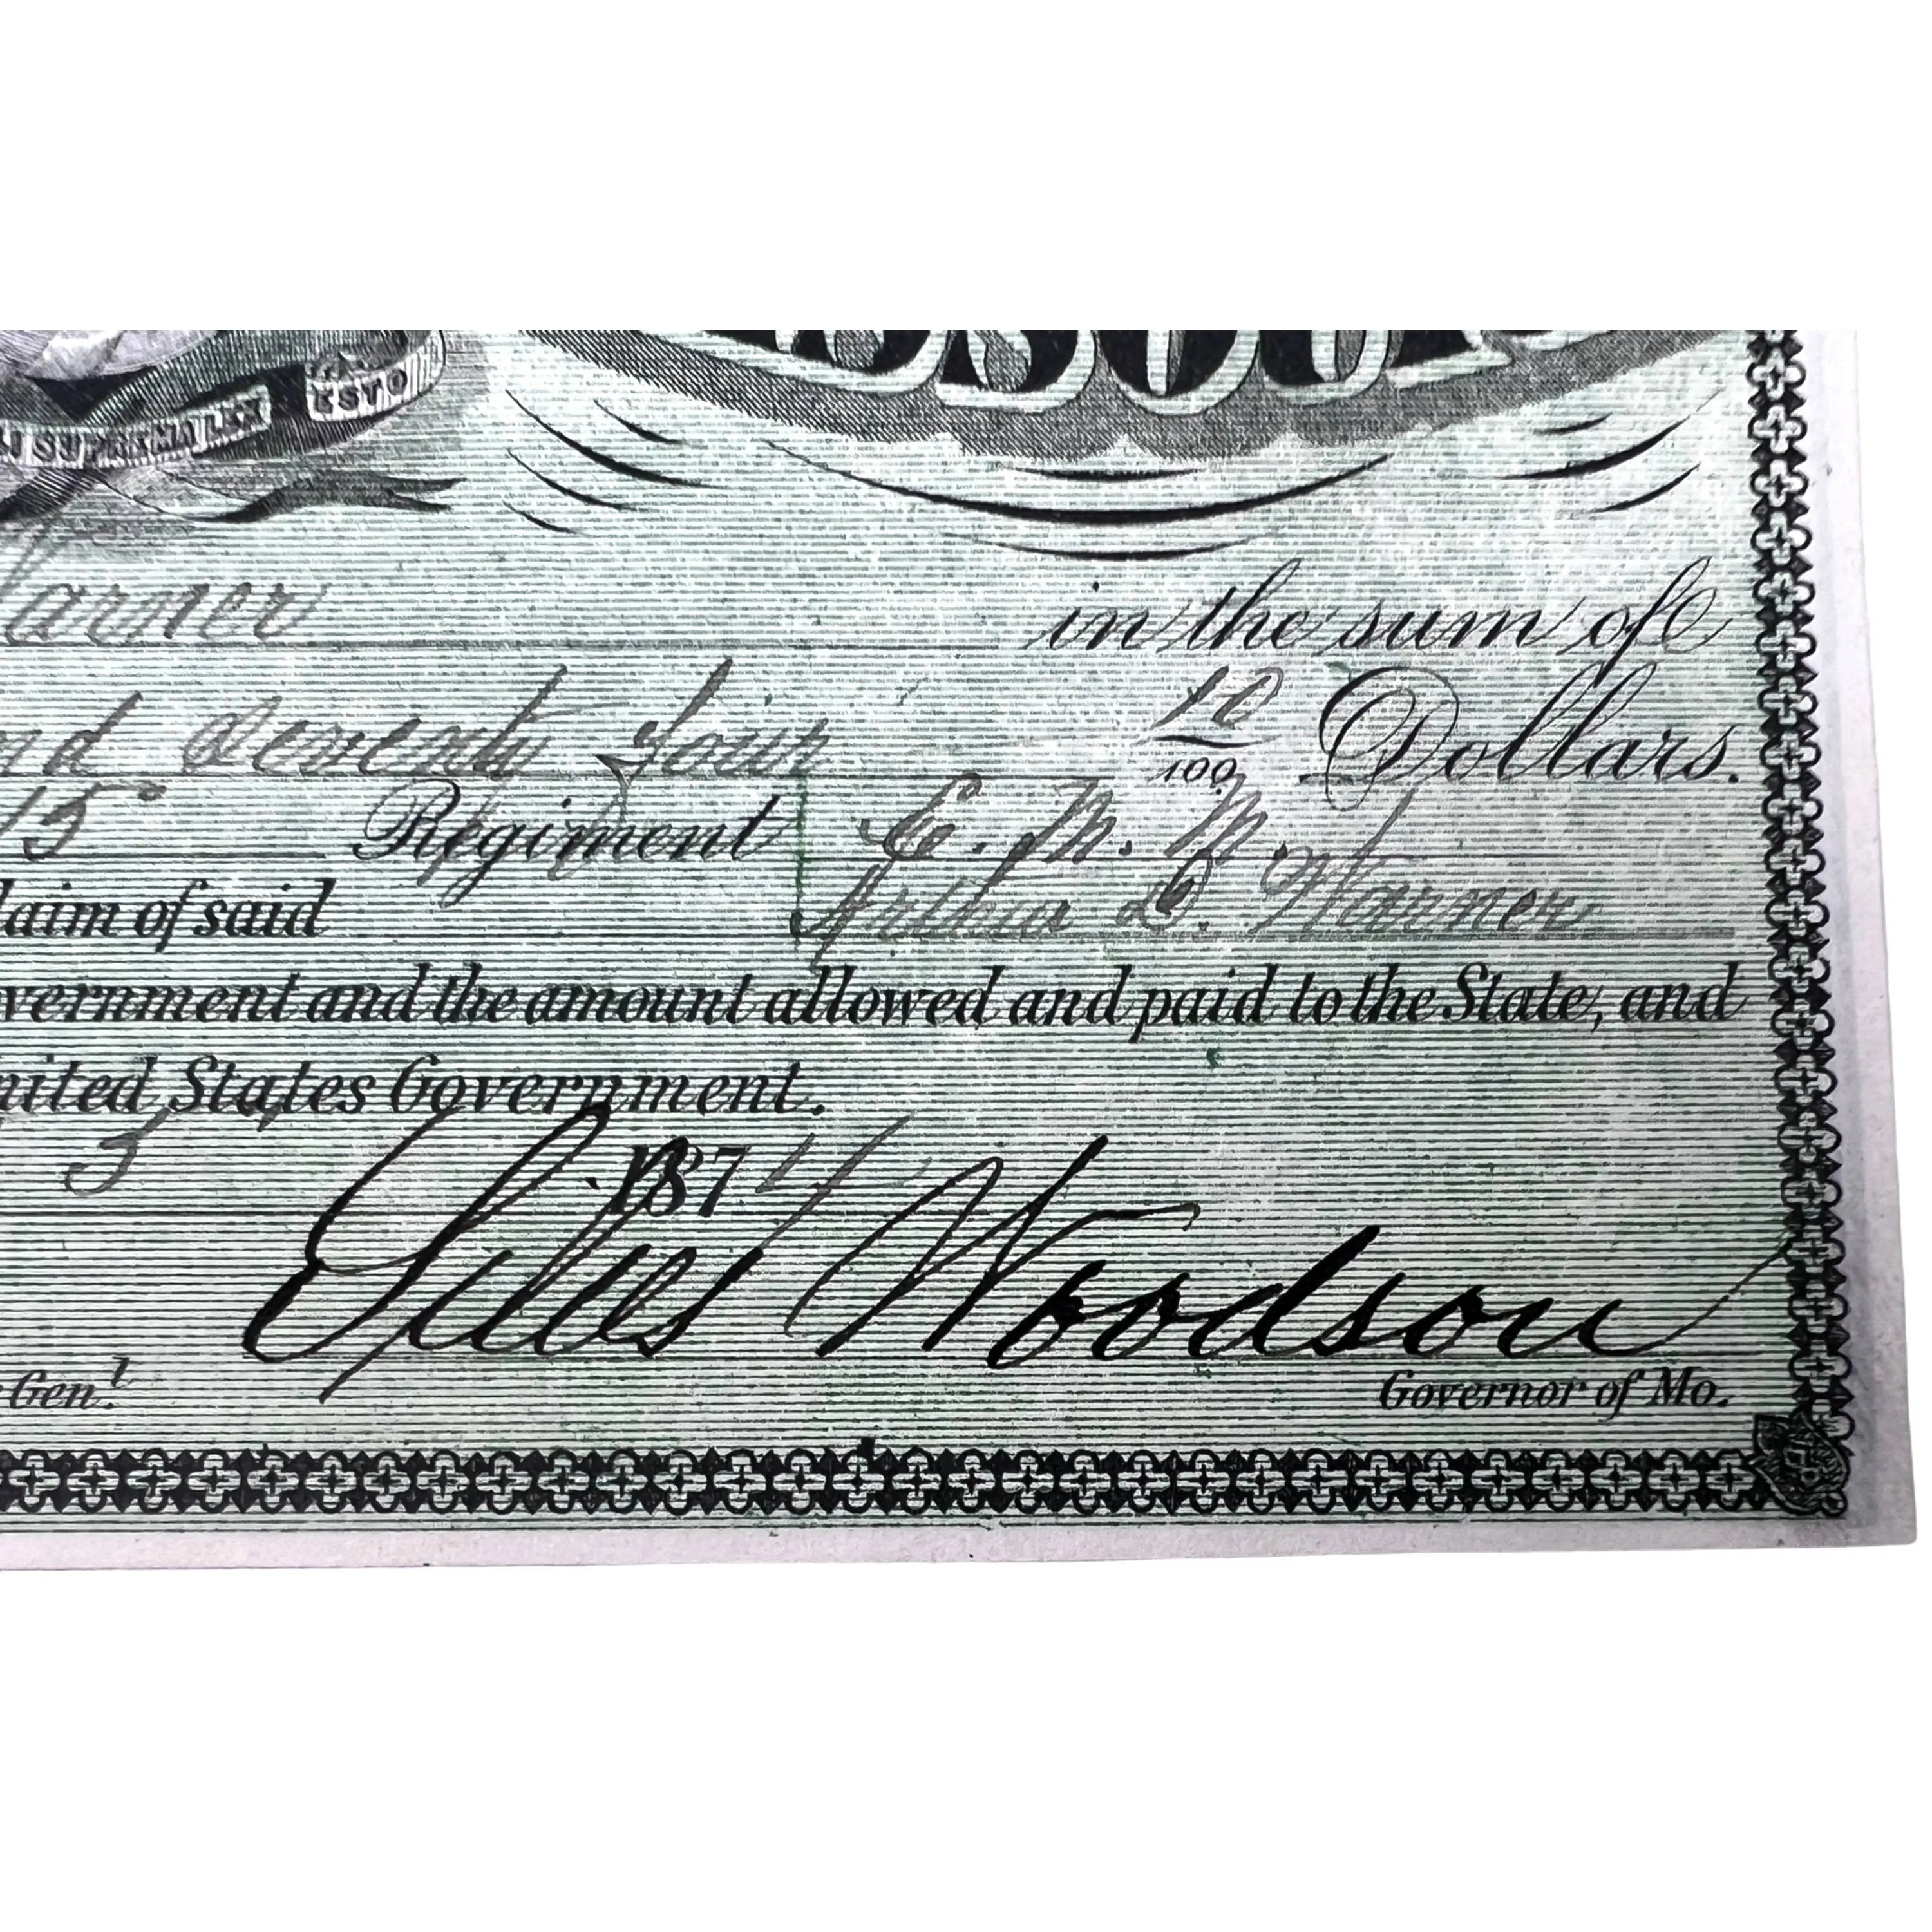 SSOU
ESTO
I SUPREMA LEX
Warner in the sum of
nd Seventy four 10/100 Dollars.
15" Regiment E. M. M. of
laim of said Arthur D. Warner
vernment and the amount allowed and paid to the State, and
nited States Government.
5 1874
Silas Woodson
Gen.l Governor of Mo.